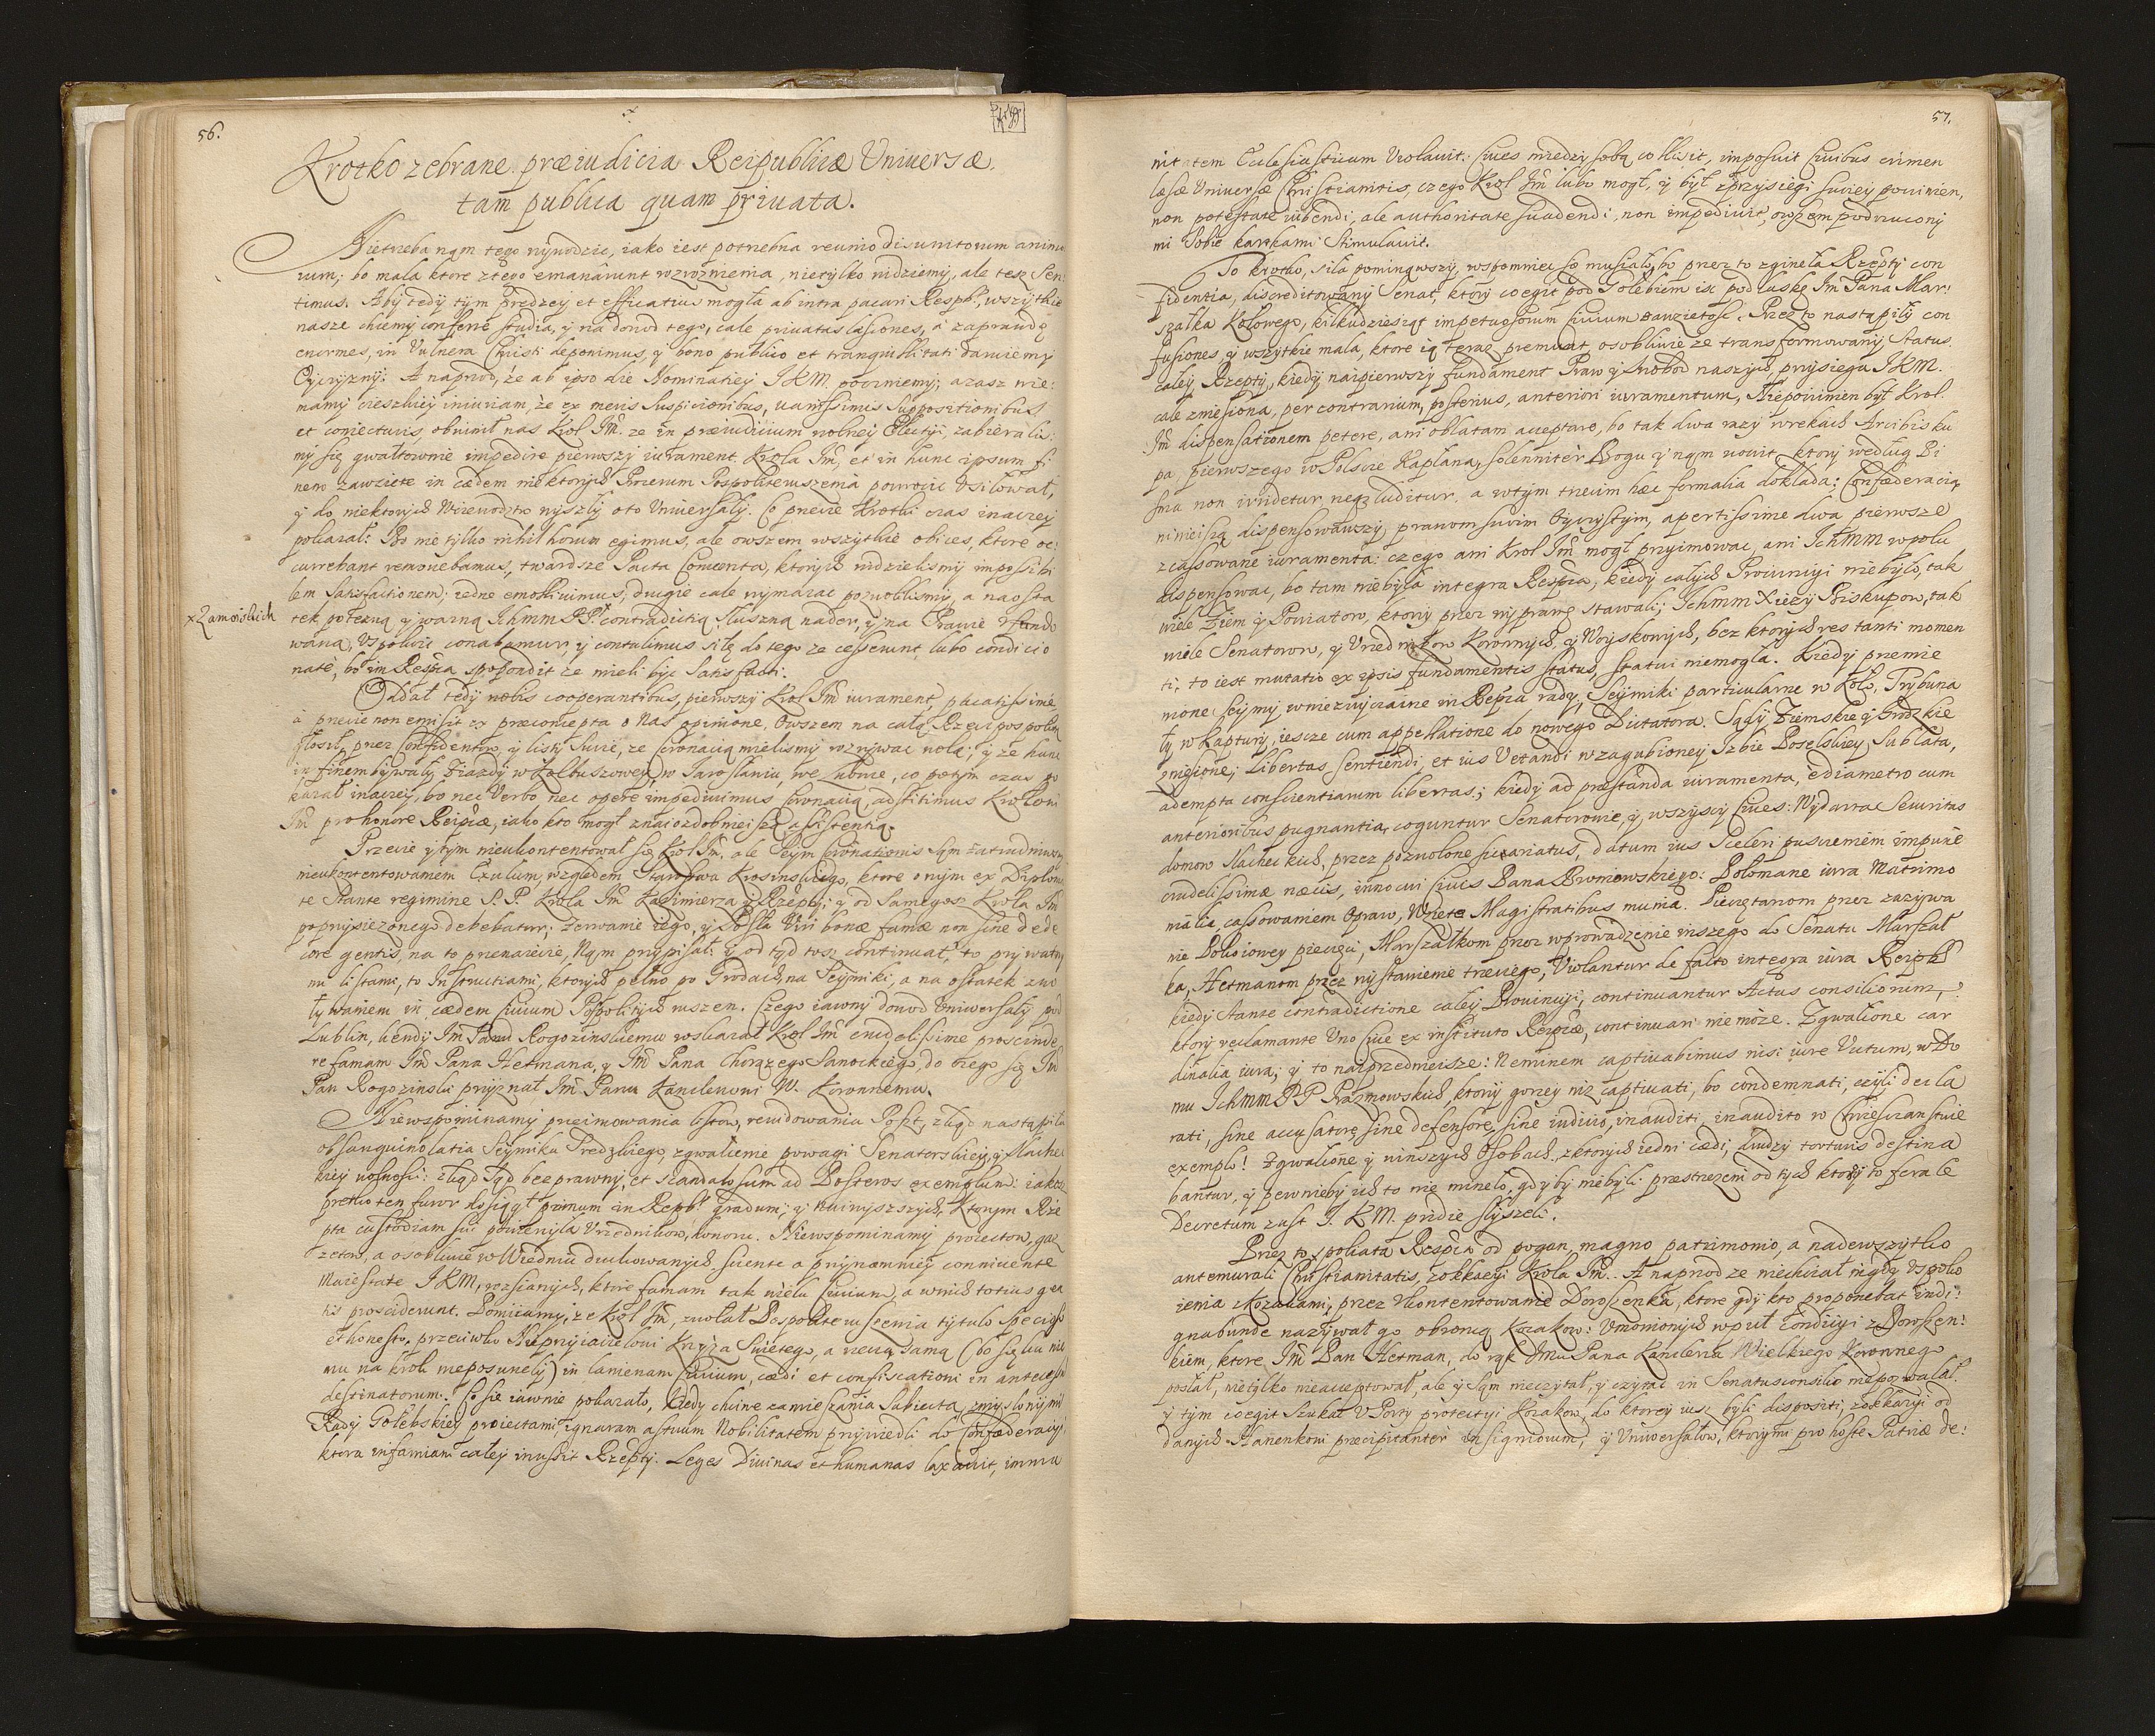 56.
Krotko zebrane præiudicia Reipublicæ Vniuersæ,
tam publica quam priuata.
Nietrzeba nąm tego wywodzic, iako iest potrzebna reunio disunitorum animo
rum; bo mala ktore z tego emanarunt rozroznienia, nietylko widziemy, ale tesz sen:
timus. Aby tedy tym prędzey et efficatius mogła ab intra pacari Respb: wszytkie
nasze chcemy conferre studia, y na dowod tego, cale priuatas læsiones, a zaprawdę
enormes, in Vulnera Christi deponimus, y bono publico et tranquillitati daruiemy
Oyczyzny: A naprzod, że ab ipso die Nominatiey J.K.M. poczniemy; azasz nie:
mamy cieszkiey iniuriam, że ex meris suspicionibus, vanissimis suppositionibus
et coniecturis, obwinił nas Krol Jm̃. ze in præiudicium wolney Electyi, zabierali:
my się gwałtownie impedire pierwszy iurament Krola Jm̃, et in hunc ipsum fi
nem zawziete in cædem niektorych Procerum Pospolite ruszenia powrocic vsiłował,
y do niektorych Woiewodztw wyszły oto Vniuersały. Co przecie krotki czas inaczey
pokazał: Bo nie tylko nihil horum egimus, ale owszem wszytkie obices, ktore oc:
currebant remouebamus, twardsze Pacta Conuenta, ktorych widzielismy impossibi
lem satisfactionem; iedne emolliuimus, drugie cale wymazac pozwolilismy, a na osta
x Zamoiskich
tek potęzną y wazną Ichmm PP.x contradictią słuszną nader, y na Prawie vfundo
waną, vspokoic conabamur, y contulimus siłę do tego ze cesserunt, lubo conditio
nate, bo im Respca spospondit ze mieli byc satisfacti.
Oddał tedy nobis cooperantibus, pierwszy Krol Jm̃ iurament, pacatissime
a przecie non emisit ex præconcepta o Nas opinione, Owszem na całą Rzeczpospolitą
głosił, przez Confidentow, y listy swoie, ze Coronacią mielismy rozrywac wolą; y ze hunc
in finem bywały Ziazdy w Kolbuszowey, w Jarosławiu, we Lwowie, co potym czas po
kazał inaczey, bo nec Verbo nec opere impediuimus Coronacią, adstitimus Krolowi
Jm̃ pro honore Reipcæ, iako kto mogł znaiozdobnieiszą assistentią.
Przecie y tym nieukontentował się Krol Jm̃, ale Seym Coronationis sąm zatrudniwszy
nieukontentowaniem Exulum, względem Starostwa Krosinskiego, ktore onym ex Diplomo
te stante regimine S. P. Krola Jm̃ Kazimierza y Rzepty; y od samegosz Krola Jm̃
poprzysiezonego debebatur; Zerwanie iego, y Posła Viri bonæ famæ non sine dede
core gentis, na to przenaiecie, Nąm przypisał: y od tąd tosz continuat, to prywatny
mi listami, to Instructiami, ktorych pełno po Grodach, na Seymiki, a na ostatek zwo
ływaniem in cædem Ciuium Pospolitych ruszen. Czego iawny dowod Vniwersały pod
Lublin, kiendy Jm̃ Panu Rogozinskiemu roskazał Krol Jm̃ crudelissime proscinde
re famam Jm̃ Pana Hetmana, y Jm̃ Pana Chorązego Sanockiego, do czego się Jm̃
Pan Rogozinski przyznał Jm̃ Panu Kanclerzowi W. Koronnemu.
Niewspominamy przeimowania listow, rewidowania Poszt, zkąd nastąpiła
obsanguinolatia Seymiku Sredzkiego, zgwałcenie powagi Senatorskiey, y Slachec
kiey wolnosci: Zkąd Sąd bezprawny, et scandalosum ad Posteros exemplum: iakosz
prętko ten furor dosiągł primum in Repb: gradum; y nawyszszych, Ktorym Rze
pta custodiam sui powierzyła Vrzednikow, honoru. Niewspominamy proiectow, gaz
zetow, a osobliwie w Wiedniu drukowanych sciente a przynamniey conniuente
Maiestate J.K.M, rozsianych, ktore famam tak wielu Ciuium, a wnich totius gen
tis prosciderunt. Pomiiamy, ze Krol Jm̃, zwołał Pospolite ruszenia tytulo specioso
et honesto, przeciwko Nieprzyiacielowi Krzyza Swietego, a rzeczą samą (bo się ku nie
mu na krok nieposuneły) in lanienam Ciuium, cædi et confiscationi in antecessum
destinatorum. Co sie iawnie pokazało, Kiedy chciwe zamieszania subiecta, zmyslonymi
Rady Gołebskiey proiectami, ignaram astuum Nobilitatem przywiedli do Confæderacyi
ktora infamiam całey inussit Rzepty. Leges Diuinas et humanas laxauit, immu
57.
nitatem Eclesiasticam violauit. Ciues miedzy sobą collisit, imposuit Ciuibus crimen
læsæ Vniuersæ Christianitatis, czego Krol Jm̃ lubo mogł, y był z przysiegi swoiey powinien,
non potestate iubendi, ale authoritate suadendi, non impediuit, owszem podrzuconÿ
mi sobie kartkami stimulauit.
To krotko, siła pominąwszy, wspomniec sie musiało, bo przez to zgineła Rzepty con
fidentia, discreditowany Senat, ktory coegit pod Gołebiem isc pod laskę Jm̃ Pana Mar:
szałka Kołowego, kilkudziesiąt impetuosorum Ciuium zawzietosc. Przez to nastąpiły con
fusiones, y wszytkie mala, ktore ią teraz premunt, osobliwie ze transformowany status
całey Rzepty, kiedy naipierwszy fundament Praw y swobod naszych, przysiega J.K.M.
cale zniesiona, per contrarium, posterius, anteriori iuramentum, Niepowinien był Krol
Jm̃ dispensationem petere, ani oblatam acceptare, bo tak dwa razy w rekach Arcibisku
pa, pierwszego w Polscze Kapłana, solenniter Bogu y nąm vouit, ktory według Pi
sma non irridetur neqz luditur, a wtym trzecim hæc formalia dokłada: Confæderacią
ninieiszą dispensowawszy, prawom swoim Oyczystym, apertissime dwa pierwsze
zcassowane iuramenta: czego ani Krol Jm̃ mogł przyimowac, ani Ichmm w polu
dispensowac, bo tam niebyła integra Respca, kiedy całych Prowincyi niebyło, tak
wiele Ziem y Powiatow, ktory przez wyprawę stawali; Ichmm Xiezy Biskupow, tak
wiele Senatorow, y Vrednikow Koronnych, y Woyskowych, bez ktorych res tanti momen
ti, to iest mutatio ex ipsis fundamentis status, statui niemogła. Kiedy przemie
nione Seymy w niezwyczaine in Repca rady, Seymiki particularne w Koło, Trybuna
ły w Kaptury, iescze cum appellatione do nowego Dictatora. Sądy Ziemskie y Grodzkie
zniesione; Libertas sentiendi, et ius Vetandi w zagubioney Izbie Poselskiey, sublata,
adempta conscientiarum libertas; kiedy ad præstanda iuramenta, e diametro cum
anterioribus pugnantia, coguntur Senatorowie, y wszyscy Ciues: Wydarta securitas
domow Slacheckich, przez pozwolone sicariatus, datum ius sceleri puszczeniem impune
crudelissimæ necis, innocui Ciuis Pana Broniewskiego: Połomane iura Matrimo
nialia, cassowaniem Opraw, Wziete Magistratibus munia. Pieczętarzom przez zazywa
nie Pokoiowey pieczęci, Marszałkom przez wprowadzenie inszego do Senatu Marszał
ka, Hetmanom przez wystawienie trzeciego, Violantur de facto integra iura Reipbł
kiedy stante contradictione całey Prouincyi, continuantur Actus consiliorum,
ktory reclamante Vno Ciue ex instituto Reipcæ, continuari nie może. Zgwałcone car
dinalia iura; y to naiprzednieisze: Neminem captiuabimus nisi iure Victum, w Do
mu Ichmm PP Prazmowskich, ktorÿ gorzey niz captiuati, bo condemnati, czyli decla
rati, sine accusatore, sine defensore, sine iudicio, inauditi inaudito w Chrzescianstwie
exemplo! Zgwałcone y w inszych Osobach, z ktorych iedni cædi, drudzy torturis destina
bantur, y pewnieby ich to nie mineło, gdyby niebyli przestrzezeni od tych ktorzy to ferale
Decretum z ust J. K.M. pridie słyszeli.
Przez to spoliata Respca od pogan, magno patrimonio, a nadewszytko
antemurali Christianitatis, z okkazyi Krola Jm̃. A naprzod ze niechciał nigdy vspoko
ienia z Kozakami, przez Vkontentowanie Doroszenka, ktore gdy kto proponebat indi:
gnabunde nazywał go obroncą Kozakow: Vmowionych wprzut Condicyi z Doroszen:
kiem, ktore Jm̃ Pan Hetman, do rąk Jmci Pana Kanclerza Wielkiego Koronnego
posłał, nietylko nieacceptował, ale y sąm nieczytał, y czytac in Senatusconsilio niepozwalał.
y tym coegit szukac V Porty protectyi Kozakow, do ktorey iusz byli dispositi, z okkazyi od
danych Hanenkowi præcipitanter insigniorum, y Vniwersałow, ktorymi pro hoste Patriæ de: